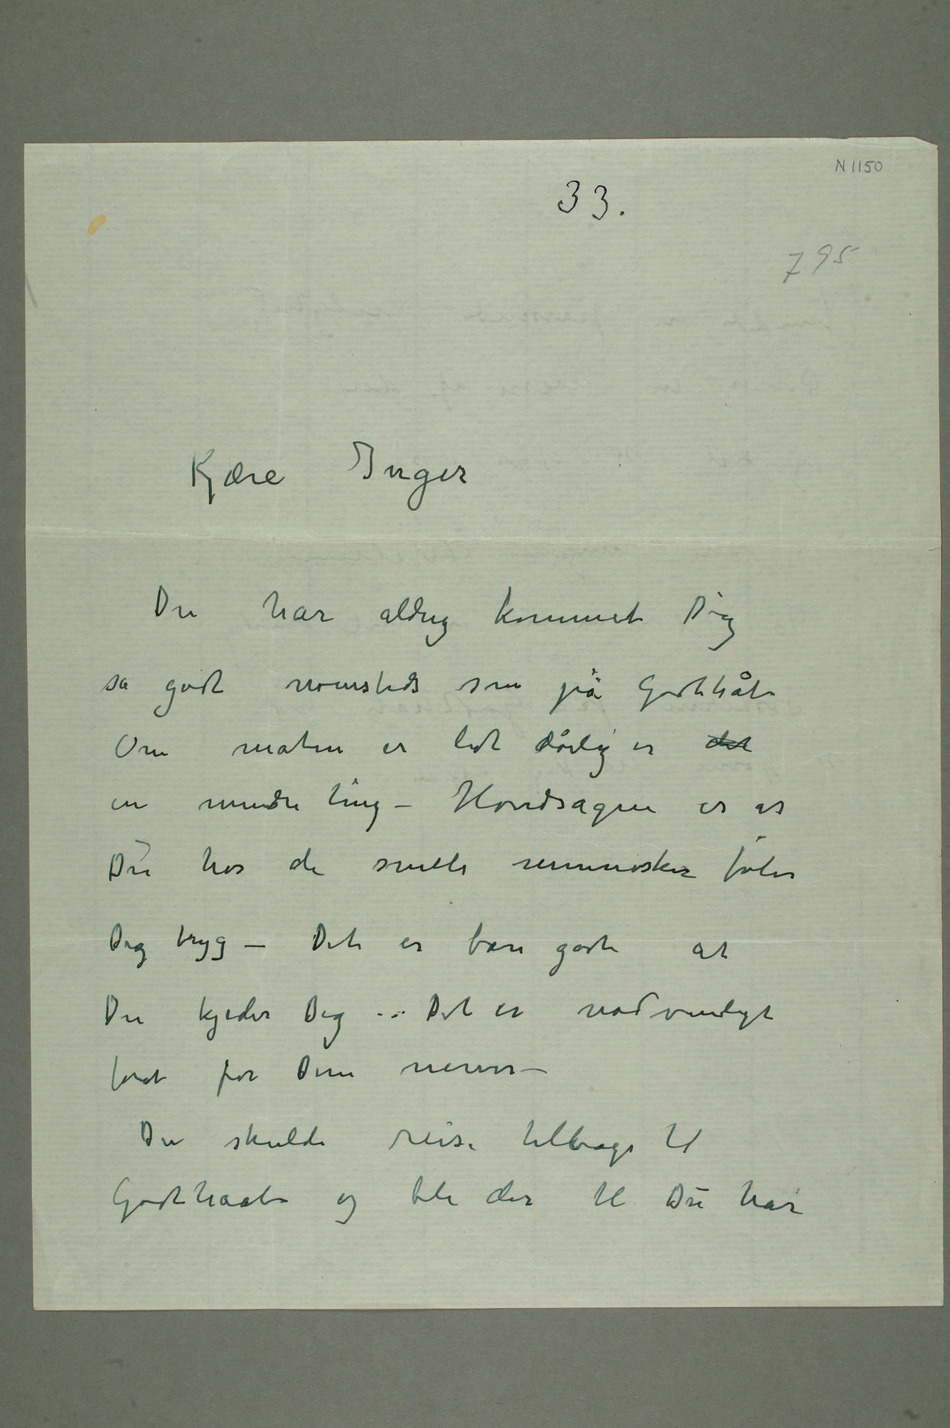 N 1150
33.
795
Kjære Inger
Du har aldrig kommet Dig
så godt nomsteds som på Godthåb
Om maten er lidt dårlig er det
en mindre ting – Hovedsagen er at
Du hos de snille mennesker føler
Dig tryg – Det er bare godt at
Du kjeder Dig … Det er nødvendigt
for Dine nerver –
Du skulde reise tilbage til
Godthaab og bli der til Du har